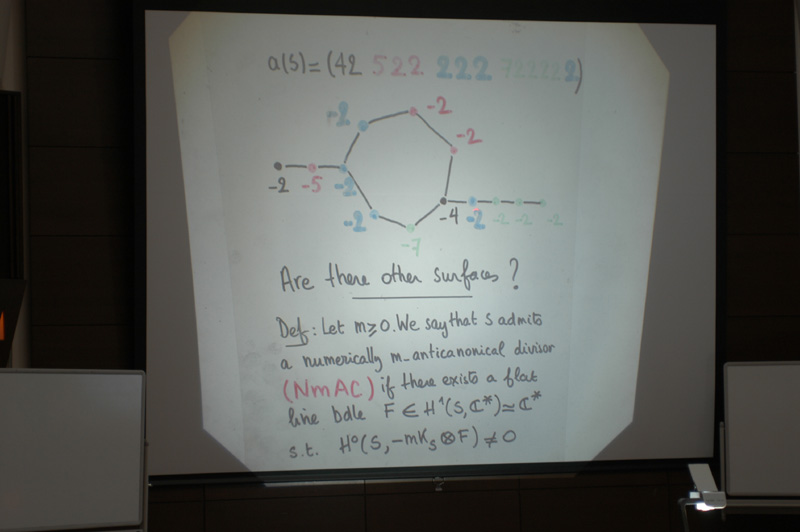 a(S)=(42 522 222 722222)
-2
-2
-2
-2 -5 -2
-2 -4 -2 -2 -2 -2
-7
Are there other surfaces ?
Def: Let m⩾0. We say that S admits
a numerically m-anticanonical divisor
(NmAC) if there exists a flat
line bdle F ∈ H¹(S,ℂ*)≃ℂ*
s.t. H⁰(S,-mK_S⊗F)≠0